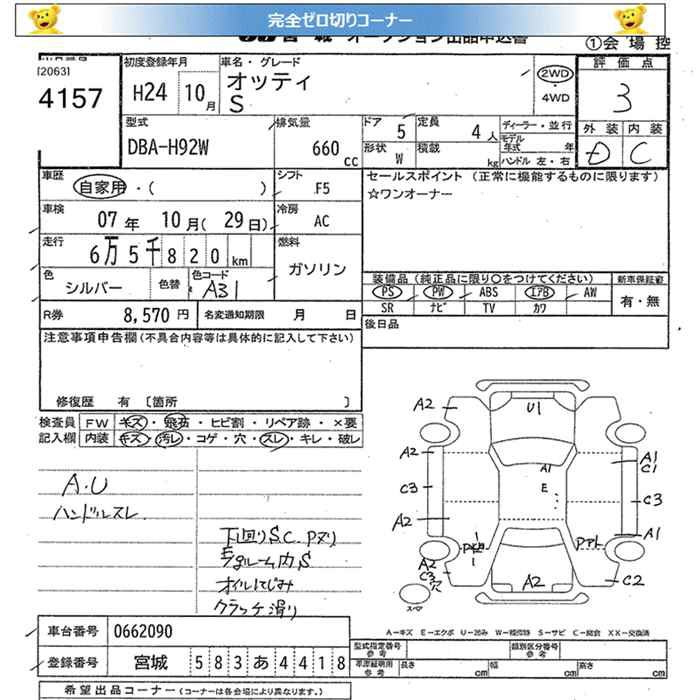 完全ゼロ切りコーナー
宮城 オークション出品申込書
①会場控
[2063]
4157
初度登録年月
H24 10月
車名・グレード
オッティ
S
2WD
・
4WD
評価点
3
外装 内装
D C
型式
DBA-H92W
排気量
660 cc
ドア 5
形状 W
定員 4人
積載 kg
ディーラー・並行
モデル年式 年
ハンドル 左・右
車歴
自家用・( )
シフト
F5
セールスポイント (正常に機能するものに限ります)
☆ワンオーナー
車検
07年 10月(29日)
冷房
AC
走行
6万5千820km
燃料
ガソリン
色
シルバー
色替
色コード
A31
装備品(純正品に限り○をつけてください)
新車保証書
PS PW ABS エアB AW
SR ナビ TV カワ
有・無
R券 8,570円
名変通知期限 月 日
後日品
注意事項申告欄(不具合内容等は具体的に記入して下さい)
修復歴 有 〔箇所 〕
検査員 FW キズ・飛石・ヒビ割・リペア跡・×要
記入欄 内装 キズ・汚レ・コゲ・穴・スレ・キレ・破レ
A.U
ハンドルスレ
下回りS.C. Pヌリ
オイルにじみ
クラッチ滑り
A2
U1
A2
A1
C1
A1
C3
E
C3
A2
A1
A2
C3
穴
A2
C2
スペア
A-キズ E-エクボ U-凹み W-補修跡 S-サビ C-腐食 XX-交換済
車台番号 0662090
登録番号 宮城 583あ4418
型式指定番号 参考
類別区分番号 参考
車庫証明用 参考
長さ cm
幅 cm
高さ cm
希望出品コーナー(コーナーは各会場により異なります。)